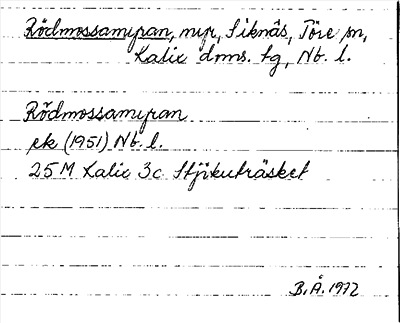 Rödmossamyran, myr, Siknäs, Töre sn,
Kalix dms. tg, Nb. l.
Rödmossamyran
ek (1951) Nb. l.
25 M Kalix 3c Stjikuträsket
B. Å. 1972